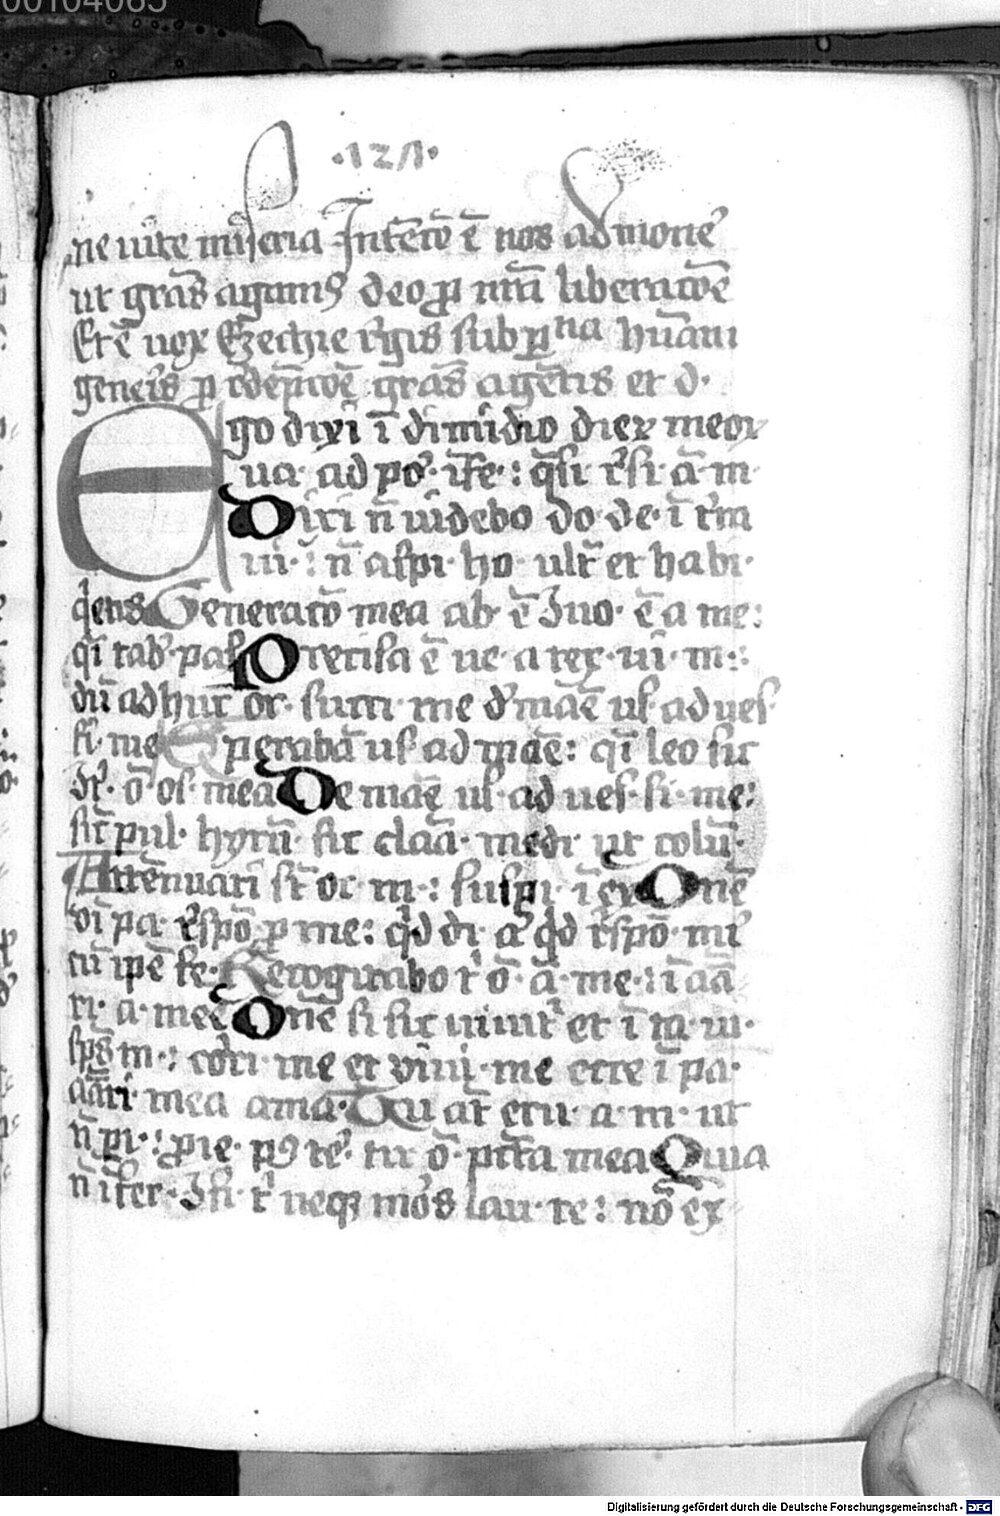 00104085
·127·
ne uite miseria Intētō ē nos admonē
ut grās agamꝰ deo ꝓ nrā liberatōē
Et ē uox Ezechie rgis sub ꝑna hūani
geneis ꝓ rdēptōē grās agētis et d·
Ego dixi ī dimidio dieꝝ meoꝝ
ua· ad po· ife·: q̄si rsi· ā· m·
Dixi n̄ uidebo do· de· ī trā
ui·: n̄ aspi· ho· ultͣ et habi·
q̇etis Generatō mea ab· ē Juo· ē a me:
qī tab· pas Precisa ē ue· a tex· ui· m·:
dū adhuc or· succi· me d maē us· ad ues·
fi· me Sperabā us· ad maē: qi leo sic
9t· ō· os· mea De maē us· ad ues· fi· me:
sic pul· hyrū· sic claā· medi· ut colū·
Attēnuati st oc· m·: suspi· ī ex Dnē
vī pa· rspō· ꝓ me: qd di· a qd rspō· mi
cū ipē fe· Recogitabo t ō· ā· me·: ī aā
ri· a· me Dnē si sic uiuit et ī ta· ui·
sps m·: cori· me et viui· me ecce ī pa·
aāri mea ama· Tu āt eru· a· m· ut
n̄ pi·: ꝓie· pꝰ te· tu· ō· pctā mea Quia
n̄ ifer· 9fi· t neqꝫ mos lau· te: nō ex
Digitalisierung gefördert durch die Deutsche Forschungsgemeinschaft - DFG